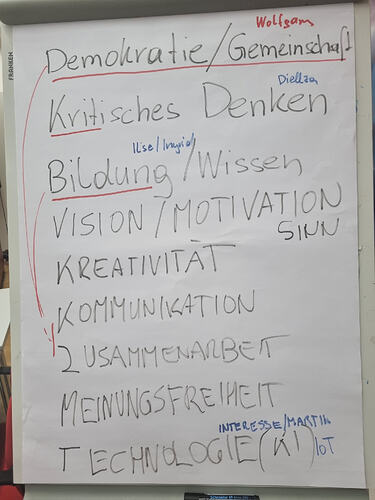 FRANKEN
Wolfgang
Demokratie/Gemeinschaft
Diellza
Kritisches Denken
Ilse/Ingrid
Bildung/Wissen
VISION/MOTIVATION
SINN
KREATIVITÄT
KOMMUNIKATION
ZUSAMMENARBEIT
MEINUNGSFREIHEIT
INTERESSE/MARTIN
TECHNOLOGIE (KI) IoT